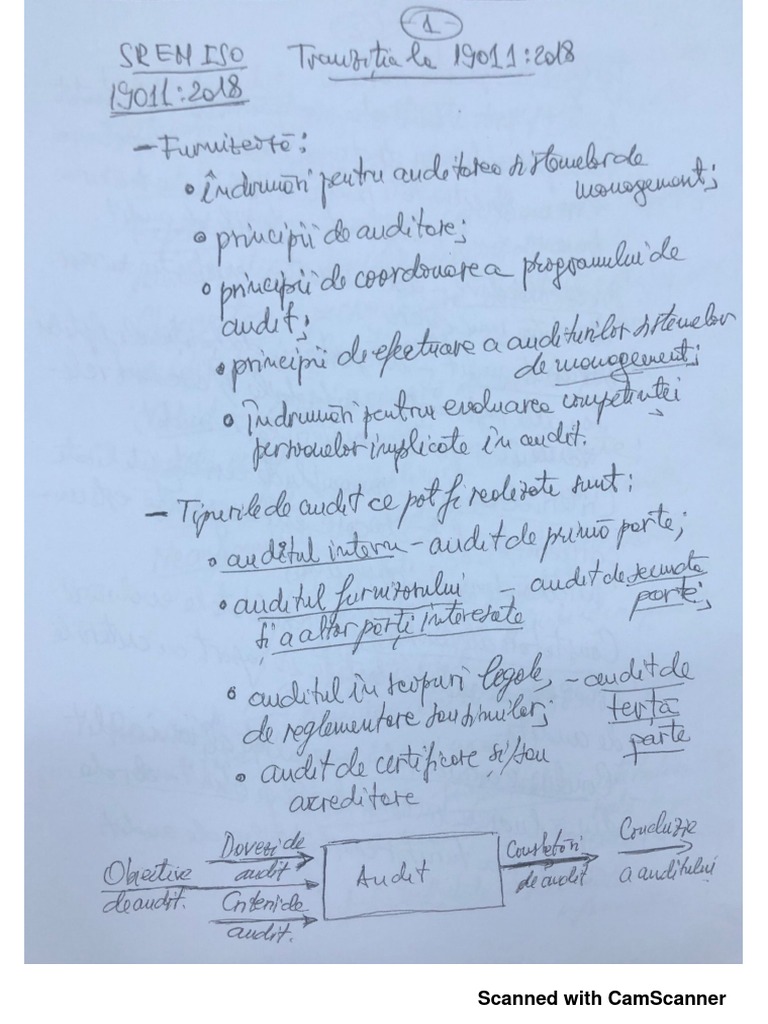 1
SR EN ISO Tranziția la 19011:2018
19011:2018
- Furnizează:
• îndrumări pentru auditarea sistemelor de
management;
• principii de auditare;
• principii de coordonare a programului de
audit;
• principii de efectuare a auditurilor sistemelor
de management;
• îndrumări pentru evaluarea competenței
persoanelor implicate în audit.
- Tipurile de audit ce pot fi realizate sunt:
• auditul intern - audit de primă parte;
• auditul furnizorului - audit de secundă
și a altor părți interesate parte;
• auditul în scopuri legale, - audit de
de reglementare sau similar; terță
parte
• audit de certificare și/sau
acreditare
Obiective Dovezi de Audit Constatări Concluzie
de audit. audit de audit a auditului
Criterii de
audit.
Scanned with CamScanner